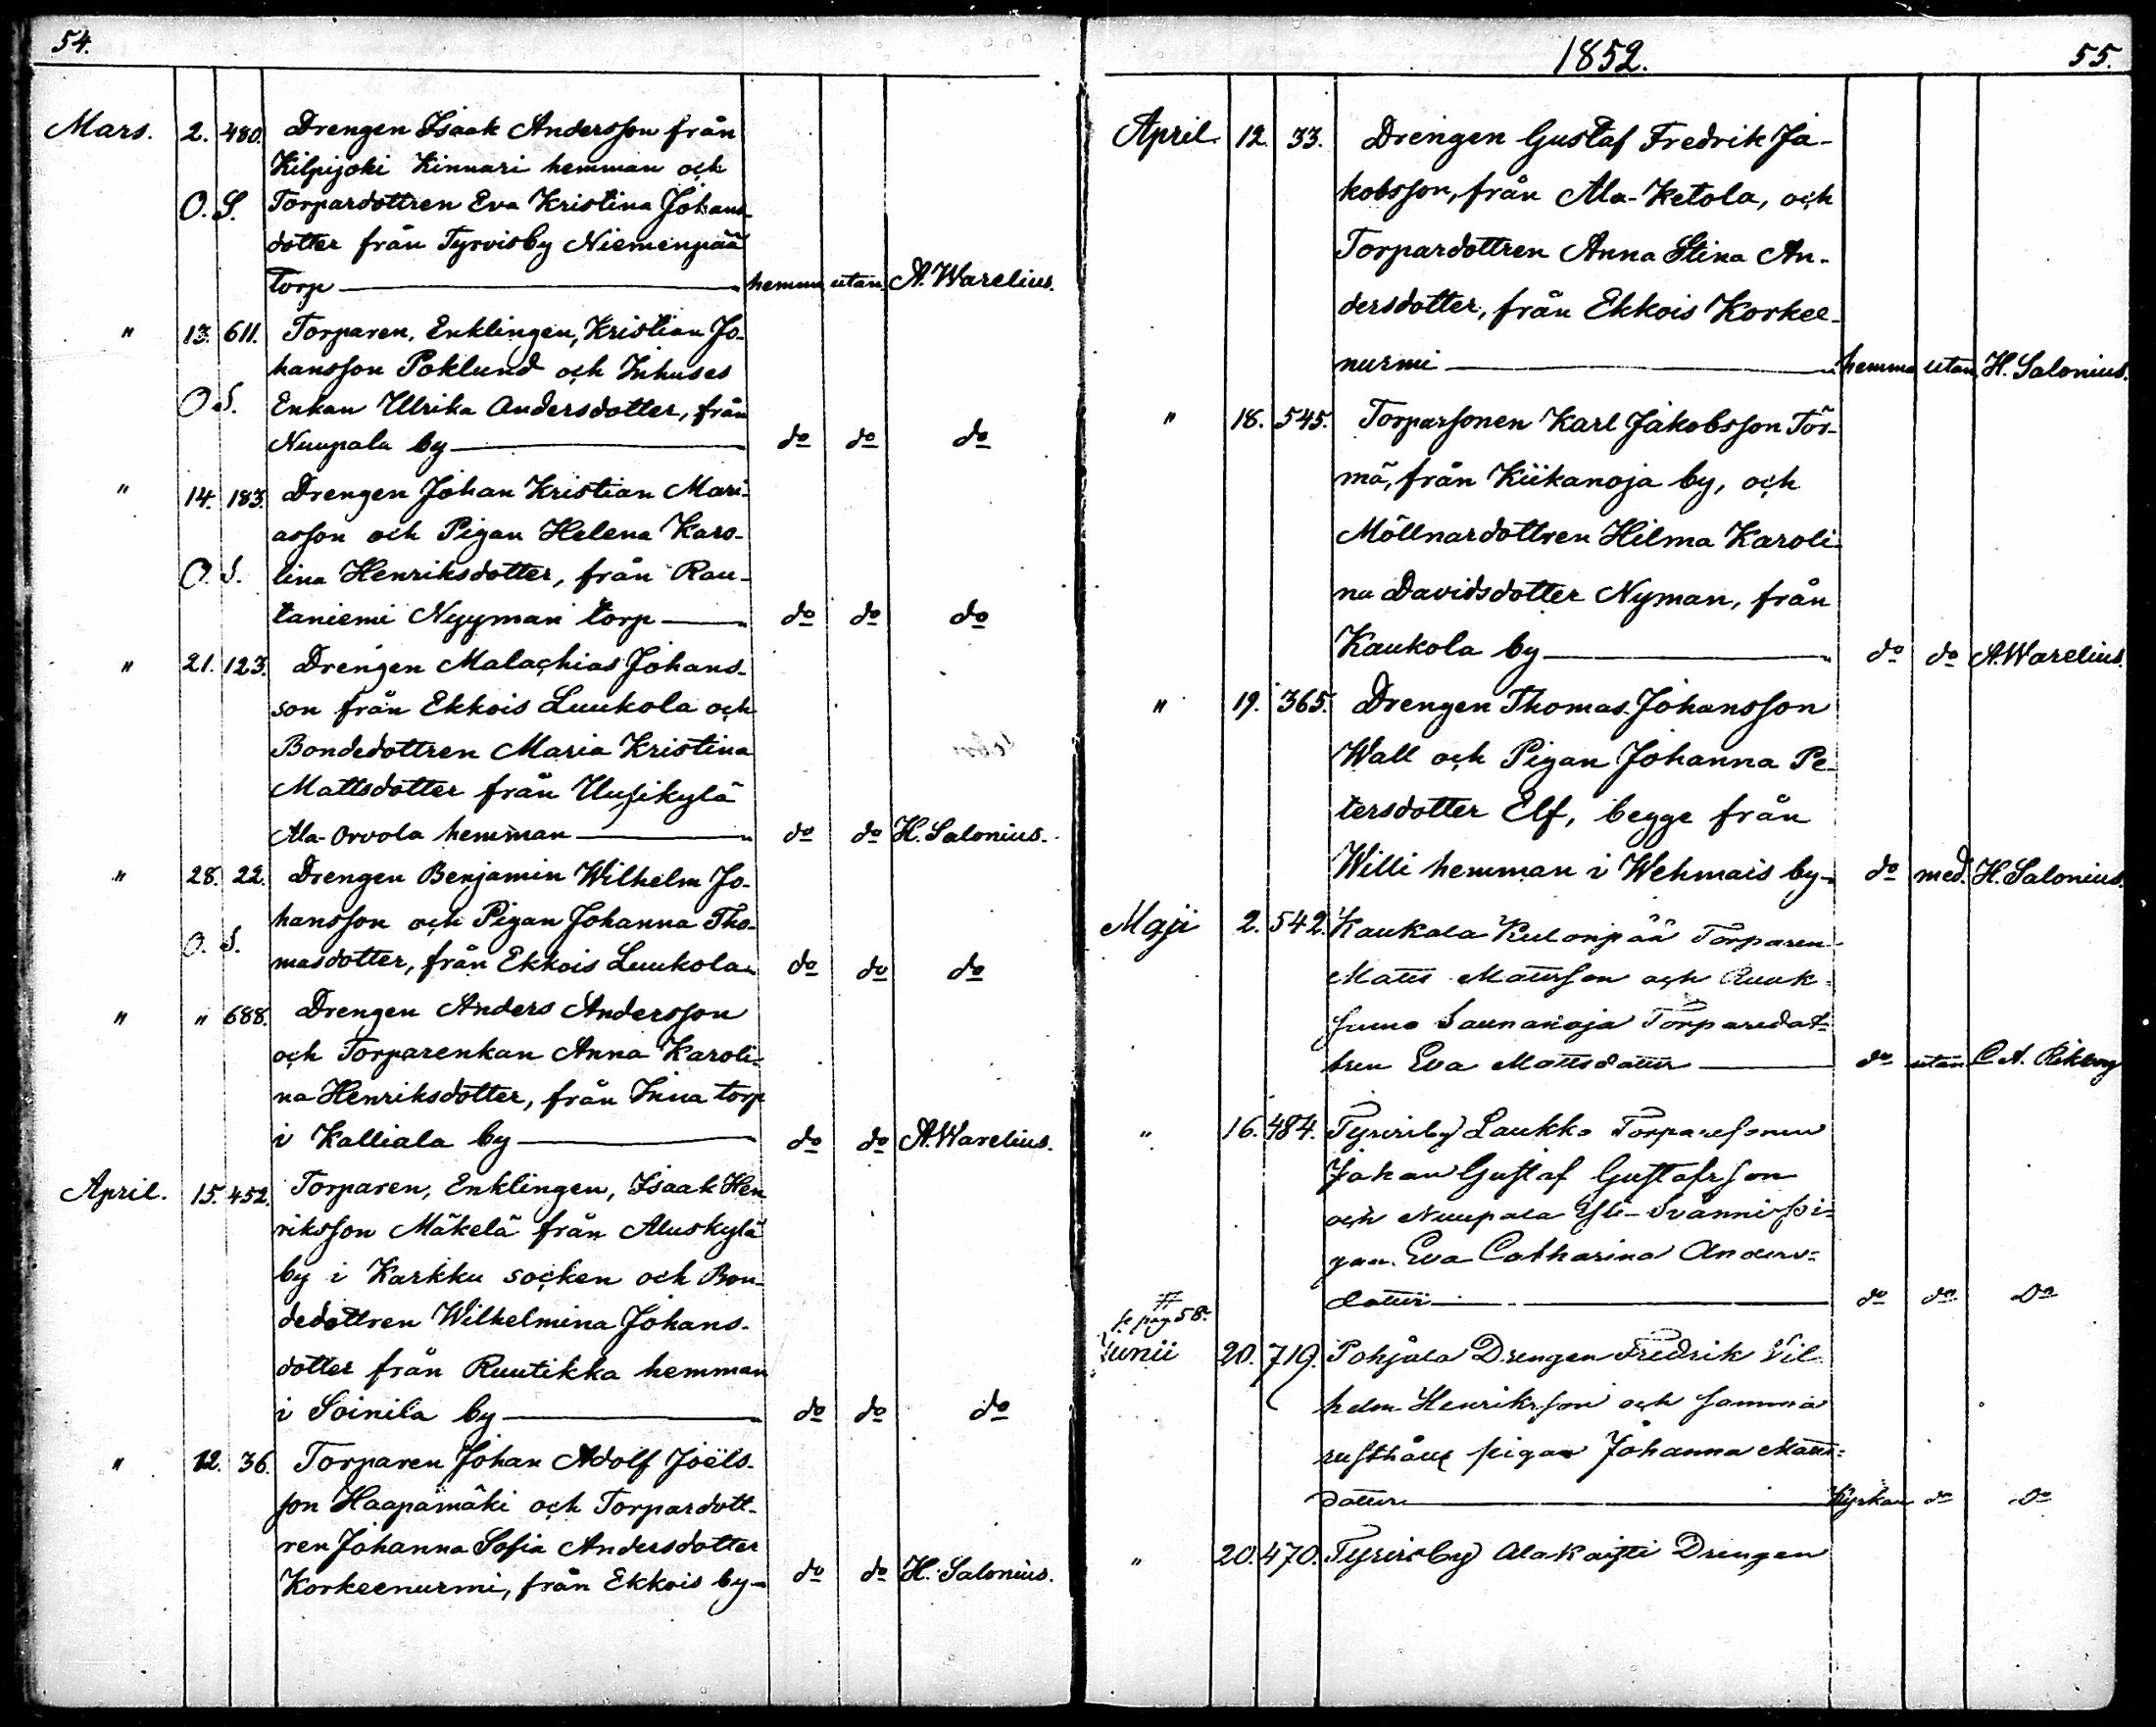 54.
Mars. 2. 480. Drengen Isaak Andersson från
Kilpijoki Kinnari hemman och
O. S. Torpardottren Eva Kristina Johans-
dotter från Tyrvisby Niemenpää
torp hemma utan A. Warelius.
" 13. 611. Torparen, Enklingen, Kristian Jo-
hansson Poklund och Inhuses
O. S. Enkan Ulrika Andersdotter, från
Nuupala by do do do
" 14. 183. Drengen Johan Kristian Mari-
asson och Pigan Helena Karo-
O. S. lina Henriksdotter, från Rau-
taniemi Nyyman torp do do do
" 21. 123. Drengen Malachias Johans-
son från Ekkois Luukola och
Bondedottren Maria Kristina
Mattsdotter från Uusikylä
Ala-Orvola hemman do do H. Salonius.
" 28. 22. Drengen Benjamin Wilhelm Jo-
hansson och Pigan Johanna Tho-
O. S. masdotter, från Ekkois Luukola do do do
" " 688. Drengen Anders Andersson
och Torparenkan Anna Karoli-
na Henriksdotter, från Inna torp
i Kalliala by do do A. Warelius.
April. 15. 452. Torparen, Enklingen, Isaak Hen
riksson Mäkelä från Aluskylä
by i Karkku socken och Bon-
dedottren Wilhelmina Johans-
dotter från Ruutikka hemman
i Soinila by do do do
" 12. 36. Torparen Johan Adolf Joëls-
son Haapamäki och Torpardott-
ren Johanna Sofia Andersdotter
Korkeenurmi, från Ekkois by do do H. Salonius.
1852. 55.
April. 12. 33. Drengen Gustaf Fredrik Ja-
kobsson, från Ala-Ketola, och
Torpardottren Anna Stina An-
dersdotter, från Ekkois Korkee-
nurmi hemma utan H. Salonius.
" 18. 545. Torparsonen Karl Jakobsson Tör-
mä, från Kiikanoja by, och
Möllnardottren Hilma Karoli-
na Davidsdotter Nyman, från
Kaukola by do do A. Warelius.
" 19. 365. Drengen Thomas Johansson
Wall och Pigan Johanna Pe-
tersdotter Elf, begge från
Willi hemman i Wehmais by do med. H. Salonius.
Maji 2. 542. Kaukola Kulonpää Torparen
Matts Mattsson och
Saunanoja Torparedot-
tren Eva Mattsdotter do utan C. A.
" 16. 484. Tyrvisby Laukko Torparesonen
Johan Gustaf Gustafsson
och Nuupala Yli- pi-
gan Eva Catharina Anders-
dotter do do do
se pag 58.
Junii 20. 719. Pohjala Drengen Fredrik Vil-
helm Henriksson och samma
rusthålls pigan Johanna Matts-
dotter Kyrkan do do
" 20. 470. Tyrvisby Alakaisti Drengen